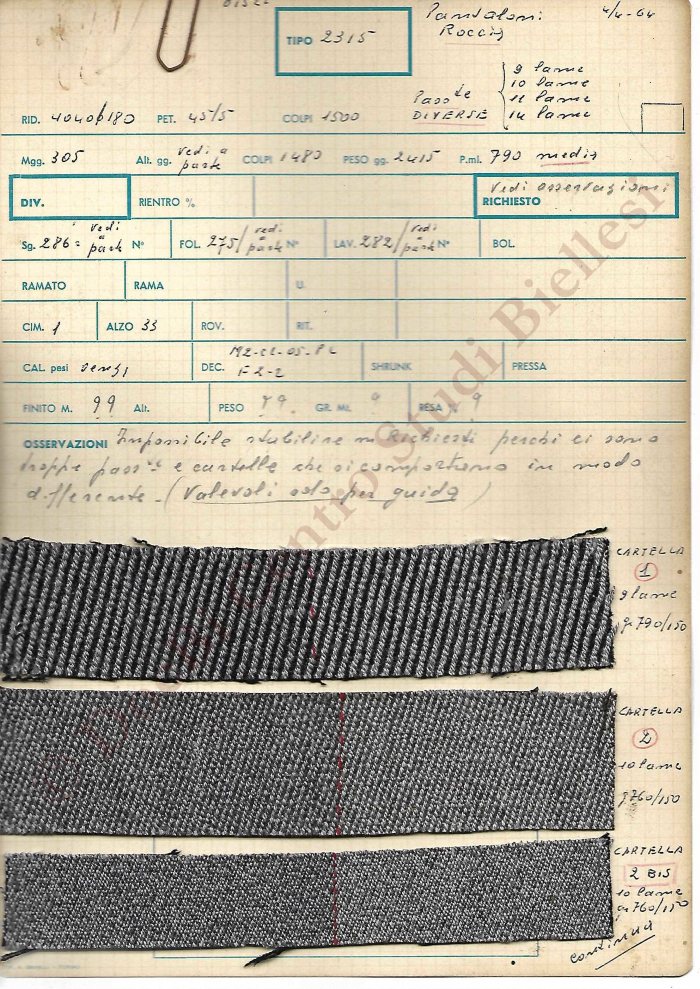 TIPO 2315
Pantaloni
Roccia
4/4-64
Pass.te
DIVERSE
9 lame
10 lame
11 lame
14 lame
RID. 4040/180 PET. 45/5 COLPI 1500
Mgg. 305 Alt. gg. vedi a parte COLPI 1480 PESO gg. 2415 P.ml. 790 medio
DIV. RIENTRO % vedi osservazioni RICHIESTO
Sg. 286= vedi a parte N° FOL. 275/ vedi a parte N° LAV. 282/ vedi a parte N° BOL.
RAMATO RAMA U.
CIM. 1 ALZO 33 ROV. RIT.
CAL. pesi DEC. SHRUNK PRESSA
FINITO M. 99 Alt. PESO GR. Ml. RESA %
OSSERVAZIONI Impossibile stabilire m Richiesti perchi ci sono
troppe pass.te e cartelle che si comportano in modo
differente - (Valevoli solo per guida)
CARTELLA
1
9 lame
g. 790/150
CARTELLA
2
10 lame
g. 760/150
CARTELLA
2 BIS
10 lame
g. 760/150
continua
Centro Studi Biellesi